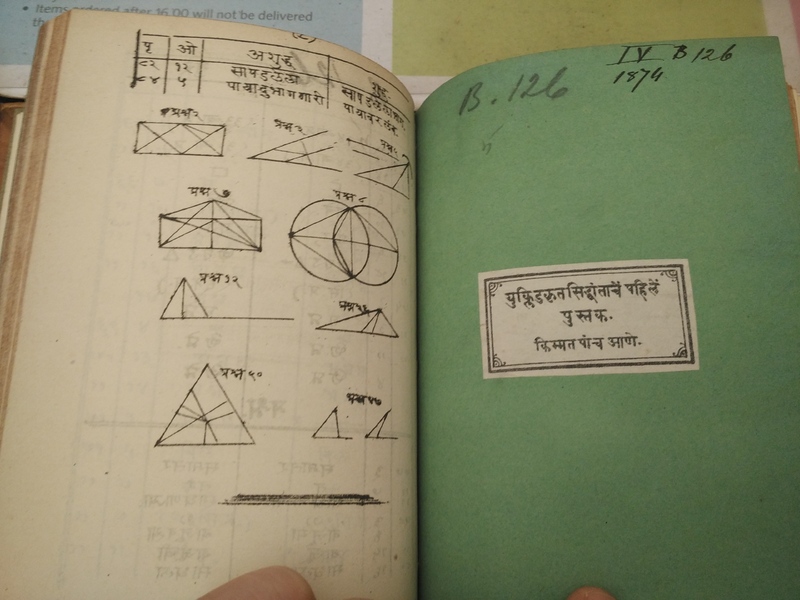 • Items ordered after 16.00 will not be delivered
(८)
पृ ओ अशुद्ध शुद्ध
८२ १२ सापडलेली
८४ ५ पायादुभागणारी
प्रश्न २
प्रश्न ३
प्रश्न ५
प्रश्न ७
प्रश्न ८
प्रश्न १२
प्रश्न १६
प्रश्न ५०
प्रश्न ५७
B. 126
IV B 126
1874
युक्लिडकृत सिद्धांताचें पहिलें
पुस्तक.
किम्मत पांच आणे.